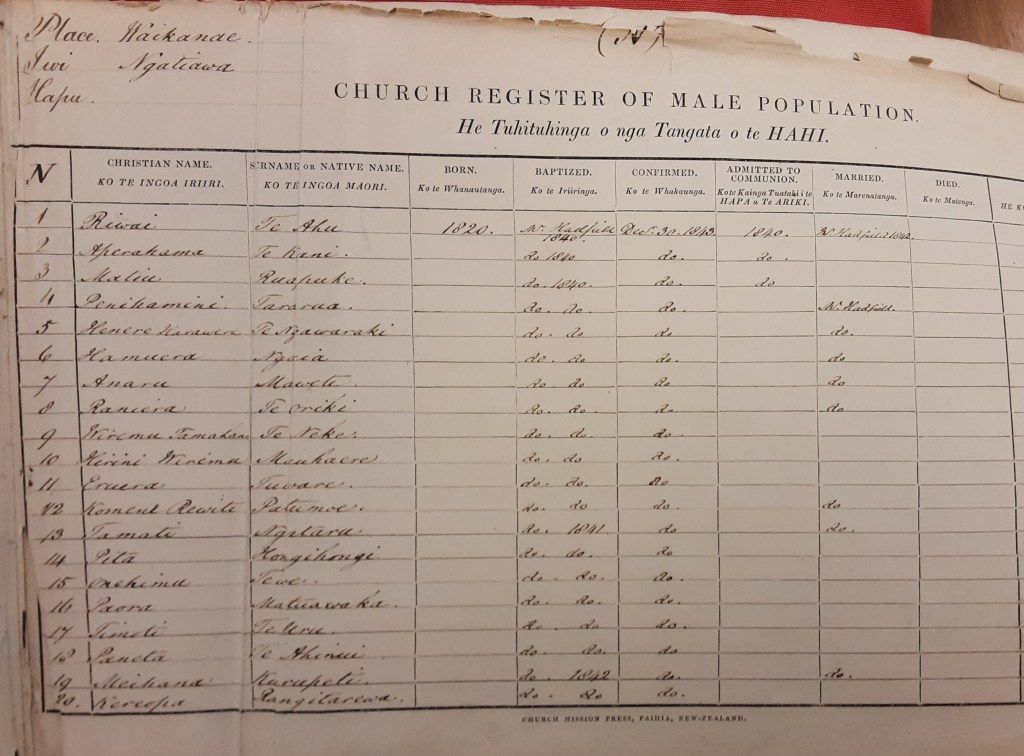 Place. Waikanae.
Iwi Ngatiawa
Hapu.
CHURCH REGISTER OF MALE POPULATION.
He Tuhituhinga o nga Tangata o te HAHI.
N CHRISTIAN NAME. SURNAME OR NATIVE NAME. BORN. BAPTIZED. CONFIRMED. ADMITTED TO COMMUNION. MARRIED. DIED.
KO TE INGOA IRIIRI. KO TE INGOA MAORI. Ko te Whanautanga. Ko te Iriiringa. Ko te Whakaunga. Ko te Kainga Tuatahi i te HAPA a Te ARIKI. Ko te Marenatanga. Ko te Matenga. HE K
1 Riwai Te Ahu 1820. Mr. Hadfield 1840. Decr. 30. 1843. 1840. Mr Hadfield 1842.
2 Aperahama Te Kini. do 1840 do. do.
3 Matiu Ruapuke. do. 1840. do. do
4 Penihamini. Tararua. do. do. do. Mr Hadfield.
5 Henere Te Ngawaraki do. do. do. do.
6 Hamuera Ngaia do. do do. do
7 Anaru Maweti. do. do do do
8 Raniera Te Oriki do. do. do do
9 Wiremu Tamahana Te Neke. do. do. do.
10 Hirini Wiremu do. do do.
11 Eruera Tuware. do. do. do
12 Rewiti Patumoe. do. do do. do
13 Tamati Ngataru do. 1841. do do.
14 Pita Hongihongi do. do. do
15 Onehimu Tewe. do. do. do.
16 Paora Matuawaka. do. do. do.
17 Timoti Te Uru. do. do do.
18 Paneta Te Ahinui do. do. do.
19 Meihana Kurupeti. do. 1842 do. do.
20. Kereopa Rangitarewa. do. do do.
CHURCH MISSION PRESS, PAIHIA, NEW-ZEALAND.